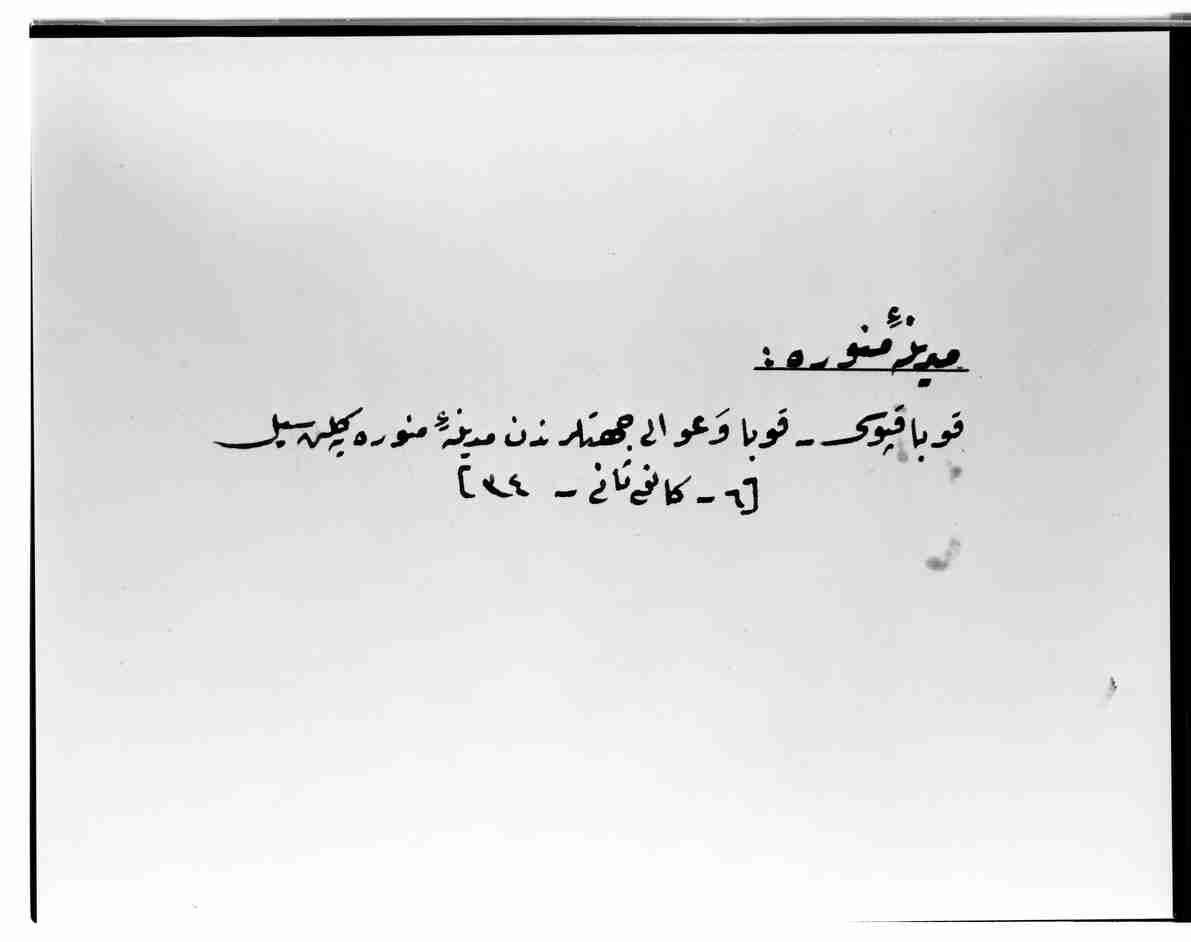 مدينۀ منوره :
قوبا قپوسى – قوبا و عوالى جهتلرندن مدينۀ منوره يه كلن سيل
[٦ – كانون ثانى – ٣٤]